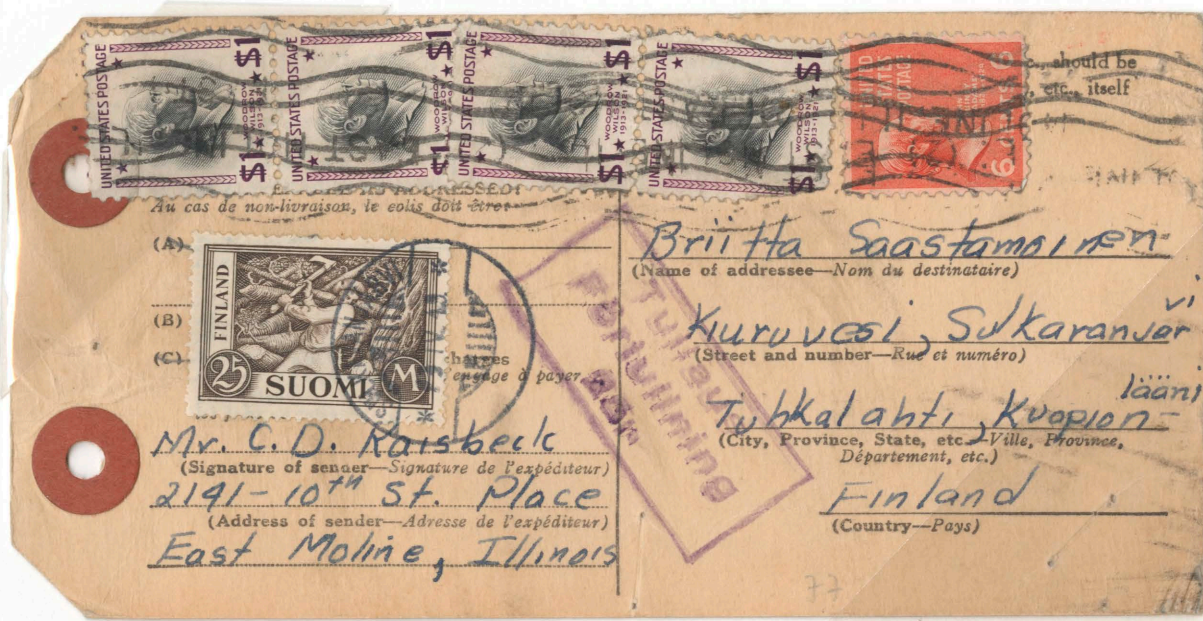 UNITED STATES POSTAGE $1 $1 WOODROW WILSON 1913-1921
UNITED STATES POSTAGE $1 $1 WOODROW WILSON 1913-1921
UNITED STATES POSTAGE $1 $1 WOODROW WILSON 1913-1921
UNITED STATES POSTAGE $1 $1 WOODROW WILSON 1913-1921
UNITED STATES POSTAGE 6 CENTS 6
, should be
, etc., itself
AS ADDRESSED:
Au cas de non-livraison, le colis doit être:
(A)
(B)
(C)
charges
engage à payer
FINLAND
25 SUOMI M
Tullavar.
Förtullning
Mr. C. D. Raisbeck
(Signature of sender—Signature de l'expéditeur)
2191-10th St. Place
(Address of sender—Adresse de l'expéditeur)
East Moline, Illinois
Briitta Saastamoinen
(Name of addressee—Nom du destinataire)
Kuruvesi, Sukaranjärvi
(Street and number—Rue et numéro)
Tuhkalahti, Kuopion-lääni
(City, Province, State, etc.—Ville, Province,
Département, etc.)
Finland
(Country—Pays)
77